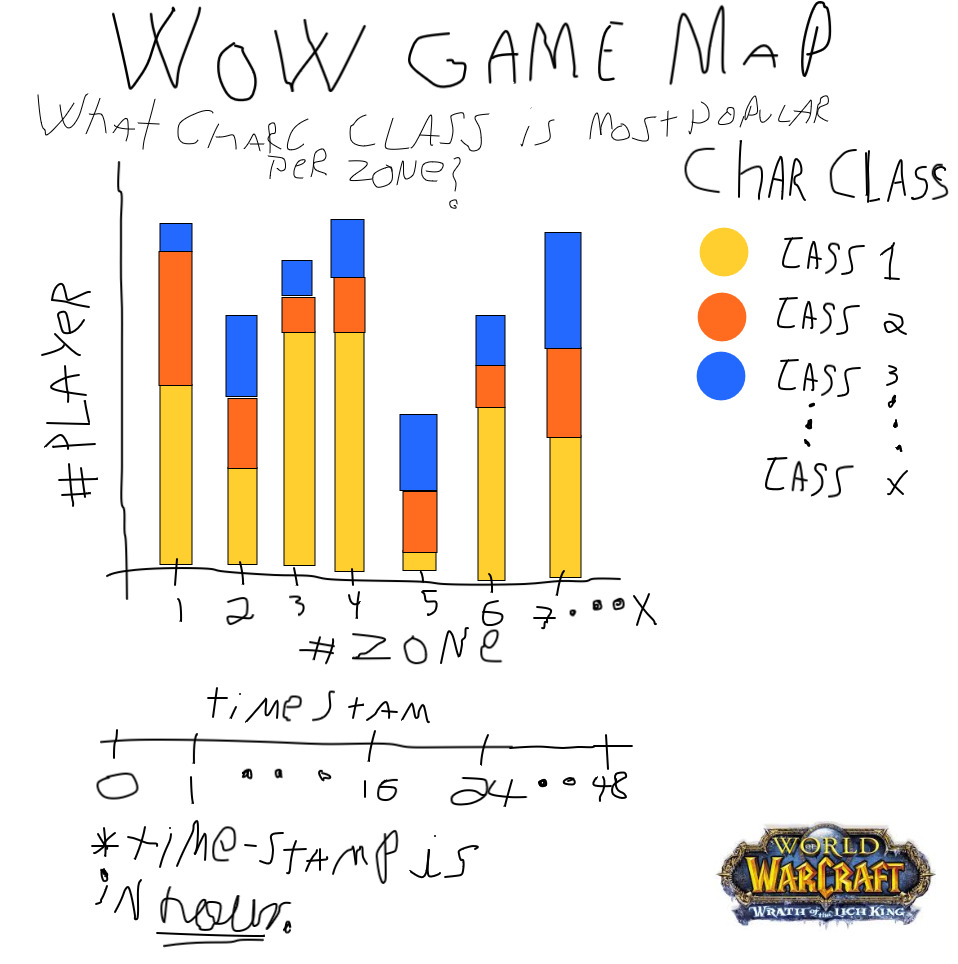 WOW GAME MAP
WHAT CHARC CLASS is MOST POPULAR
PER ZONE?
CHAR CLASS
CASS 1
CASS 2
CASS 3
CASS X
#PLAYER
1 2 3 4 5 6 7 . . . X
#ZONE
timestAM
0 1 . . . 16 24 . . 48
*time-stAMP is
iN hour.
WORLD
WARCRAFT
WRATH of the LICH KING